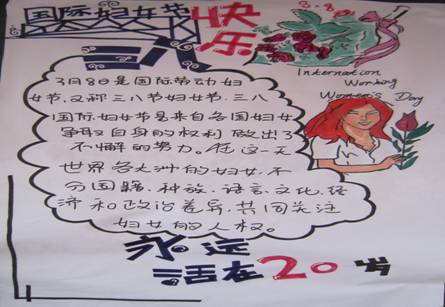 国际妇女节
快乐
3.8
三八
Internation
Working
Women's Day
3月8日是国际劳动妇
女节,又称三八节妇女节.三八
国际妇女节是来自各国妇女
争取自身的权利做出了
不懈的努力。在这一天
世界各大洲的妇女,不
分国籍、种族、语言、文化、经
济和政治差异,共同关注
妇女的人权。
永远
活在20岁